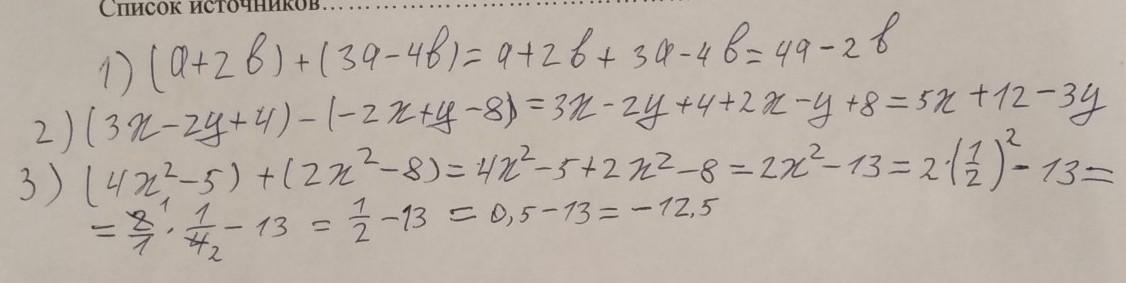 Список источников...........................
1) (a+2b)+(3a-4b)=a+2b+3a-4b=4a-2b
2) (3x-2y+4)-(-2x+y-8)=3x-2y+4+2x-y+8=5x+12-3y
3) (4x²-5)+(2x²-8)=4x²-5+2x²-8=2x²-13=2·(1/2)²-13=
=2/1·1/4-13=1/2-13=0,5-13=-12,5